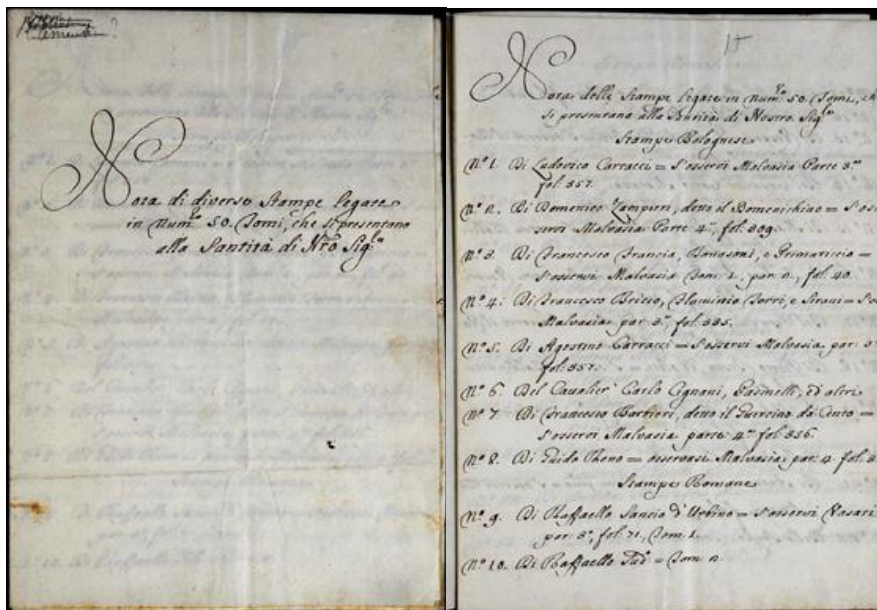 Nota di diverse Stampe legate
in Num.º 50. Tomi, che si presentano
alla Santità di Nr̃o Sig.re
15
Nota delle Stampe legate in Num.º 50. Tomi, ch
si presentano alla Santità di Nostro Sig.re
Stampe Bolognesi
N.º 1. Di Ludovico Carracci = S'osservi Malvasia Parte 3.ª
fol. 357.
N.º 2. Di Domenico Zampieri, detto il Domenichino = S'os
servi Malvasia Parte 4.ª, fol. 309.
N.º 3. Di Francesco Francia, Bonasoni, e Primaticcio =
S'osservi Malvasia Tom. 1., par. 2., fol. 40.
N.º 4. Di Francesco Briccio, Flaminio Torri, e Sirani = S'o
Malvasia par. 3.ª fol. 535.
N.º 5. Di Agostino Carracci = S'osservi Malvasia par. 3
fol. 357.
N.º 6. Del Cavalier Carlo Cignani, Pasinelli, ed altri
N.º 7. Di Francesco Barbieri, detto il Guercino da Cento =
S'osservi Malvasia parte 4.ª fol. 356.
N.º 8. Di Guido Rheno = osservasi Malvasia par. 4. fol.
Stampe Romane
N.º 9. Di Raffaello Sancio d'Urbino = S'osservi Vasari
par. 3.ª, fol. 71., Tom. 1.
N.º 10. Di Raffaello Sud.º = Tom. 2.